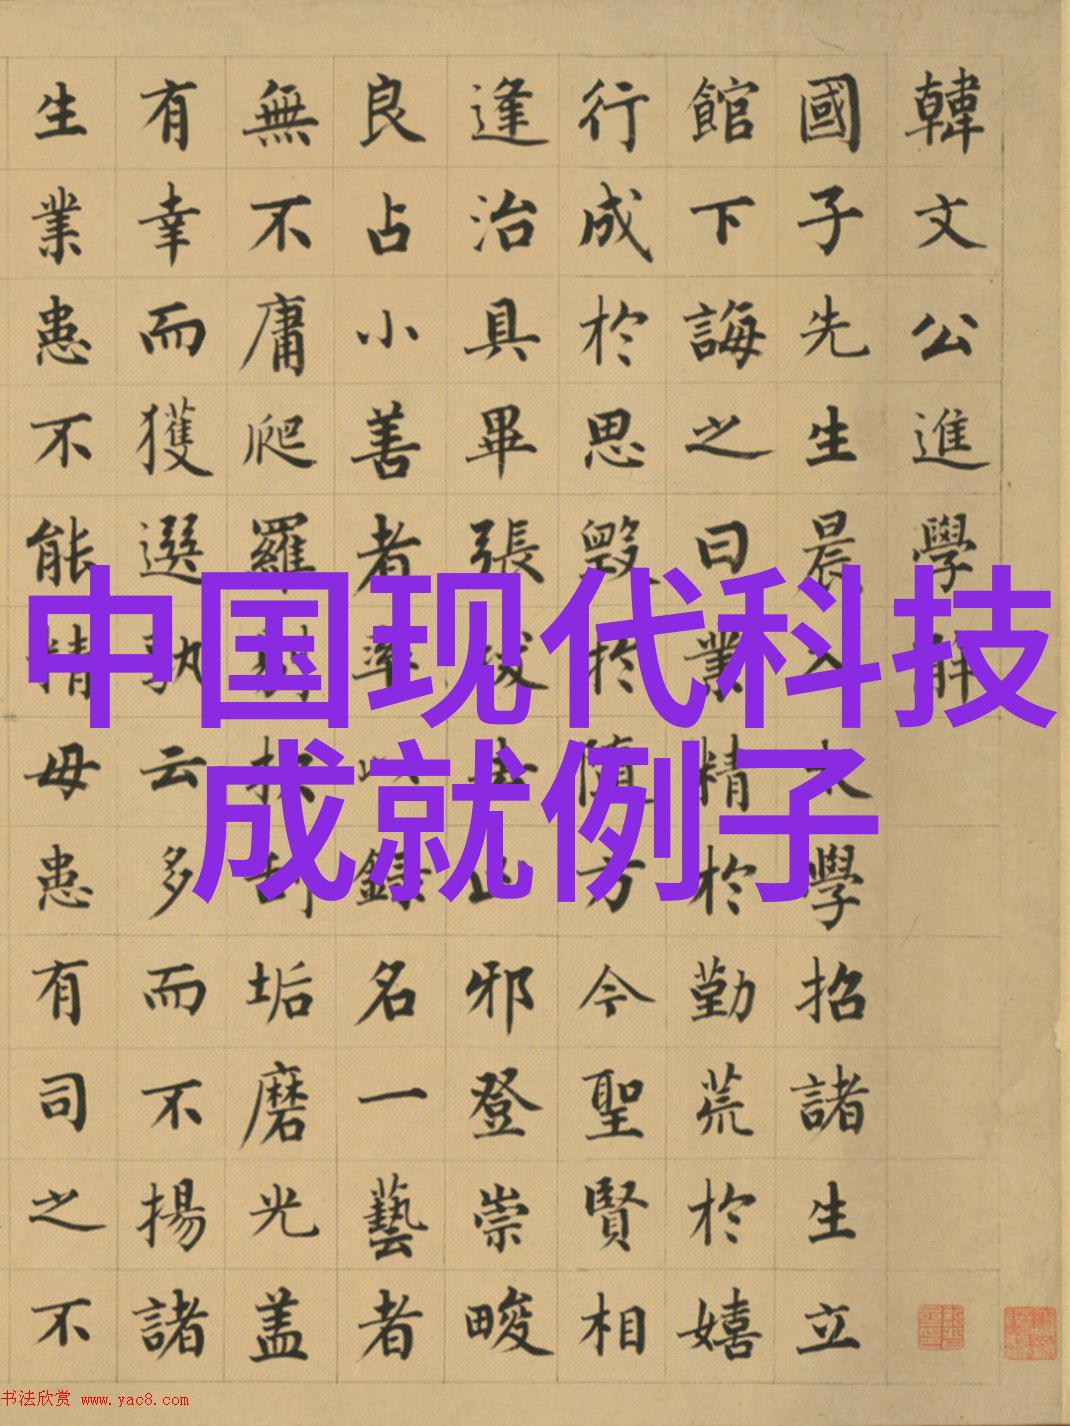 韓文公進學解
國子先生晨入太學招諸生立
館下誨之曰業精於勤荒於嬉
行成於思毀於隨方今聖賢相
逢治具畢張拔去凶邪登崇畯
良占小善者率以錄名一藝者
無不庸爬羅剔抉刮垢磨光盖
有幸而獲選孰云多而不揚諸
生業患不能精毋患有司之不
中国现代科技
成就例子
书法欣赏 www.yac8.com